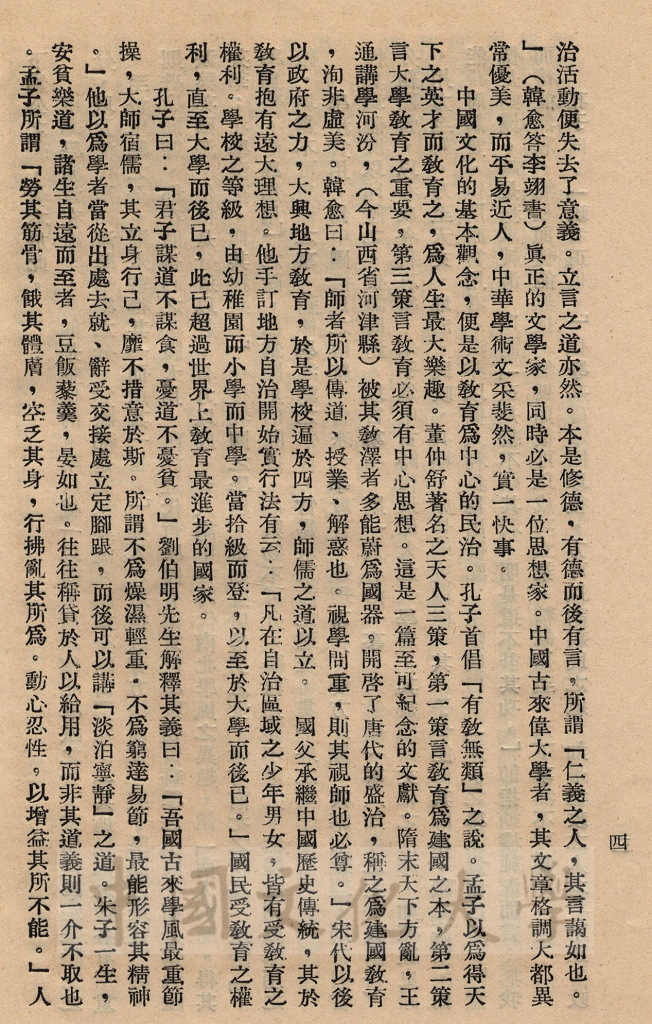 四
治活動便失去了意義。立言之道亦然。本是修德，有德而後有言，所謂「仁義之人，其言藹如也。
」（韓愈答李翊書）眞正的文學家，同時必是一位思想家。中國古來偉大學者，其文章格調大都異
常優美，而平易近人，中華學術文采斐然，實一快事。
中國文化的基本觀念，便是以敎育爲中心的民治。孔子首倡「有敎無類」之說。孟子以爲得天
下之英才而敎育之，爲人生最大樂趣。董仲舒著名之天人三策，第一策言敎育爲建國之本，第二策
言大學敎育之重要，第三策言敎育必須有中心思想。這是一篇至可紀念的文獻。隋末天下方亂，王
通講學河汾，（今山西省河津縣）被其敎澤者多能蔚爲國器，開啓了唐代的盛治，稱之爲建國敎育
，洵非虛美。韓愈曰：「師者所以傳道、授業、解惑也。視學問重，則其視師也必尊。」宋代以後
以政府之力，大興地方敎育，於是學校遍於四方，師儒之道以立。　國父承繼中國歷史傳統，其於
敎育抱有遠大理想。他手訂地方自治開始實行法有云：「凡在自治區域之少年男女，皆有受敎育之
權利。學校之等級，由幼稚園而小學而中學。當拾級而登，以至於大學而後已。」國民受敎育之權
利，直至大學而後已，此已超過世界上敎育最進步的國家。
孔子曰：「君子謀道不謀食，憂道不憂貧。」劉伯明先生解釋其義曰：「吾國古來學風最重節
操，大師宿儒，其立身行己，靡不措意於斯。所謂不爲燥濕輕重，不爲窮達易節，最能形容其精神
。」他以爲學者當從出處去就、辭受交接處立定腳跟，而後可以講「淡泊寧靜」之道。朱子一生，
安貧樂道，諸生自遠而至者，豆飯藜羹，晏如也。往往稱貸於人以給用，而非其道義則一介不取也
。孟子所謂「勞其筋骨，餓其體膚，空乏其身，行拂亂其所爲。動心忍性，以增益其所不能。」人
中國文化大學